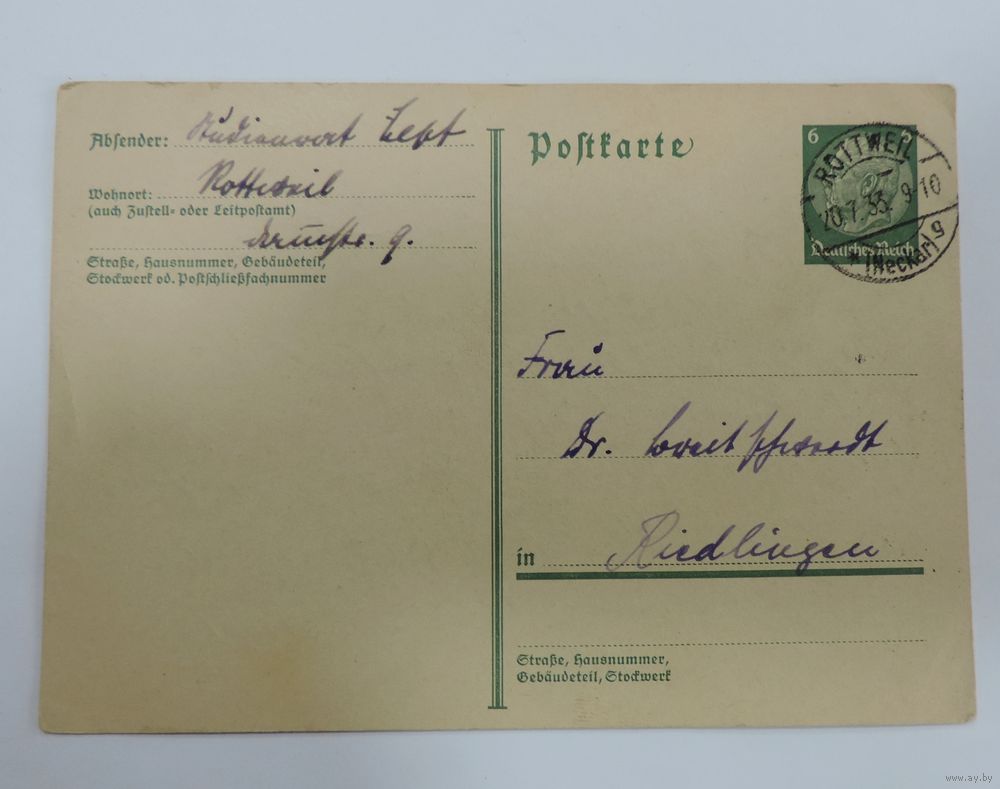 Absender: Studienrat
Wohnort: Rottweil
(auch Zustell- oder Leitpostamt)
9.
Straße, Hausnummer, Gebäudeteil,
Stockwerk od. Postschließfachnummer
Postkarte
6 6
Deutsches Reich
ROTTWEIL
20.7.33. 9-10
* (Neckar) g
Frau
Dr. Breitschwerdt
in Riedlingen
Straße, Hausnummer,
Gebäudeteil, Stockwerk
www.ay.by